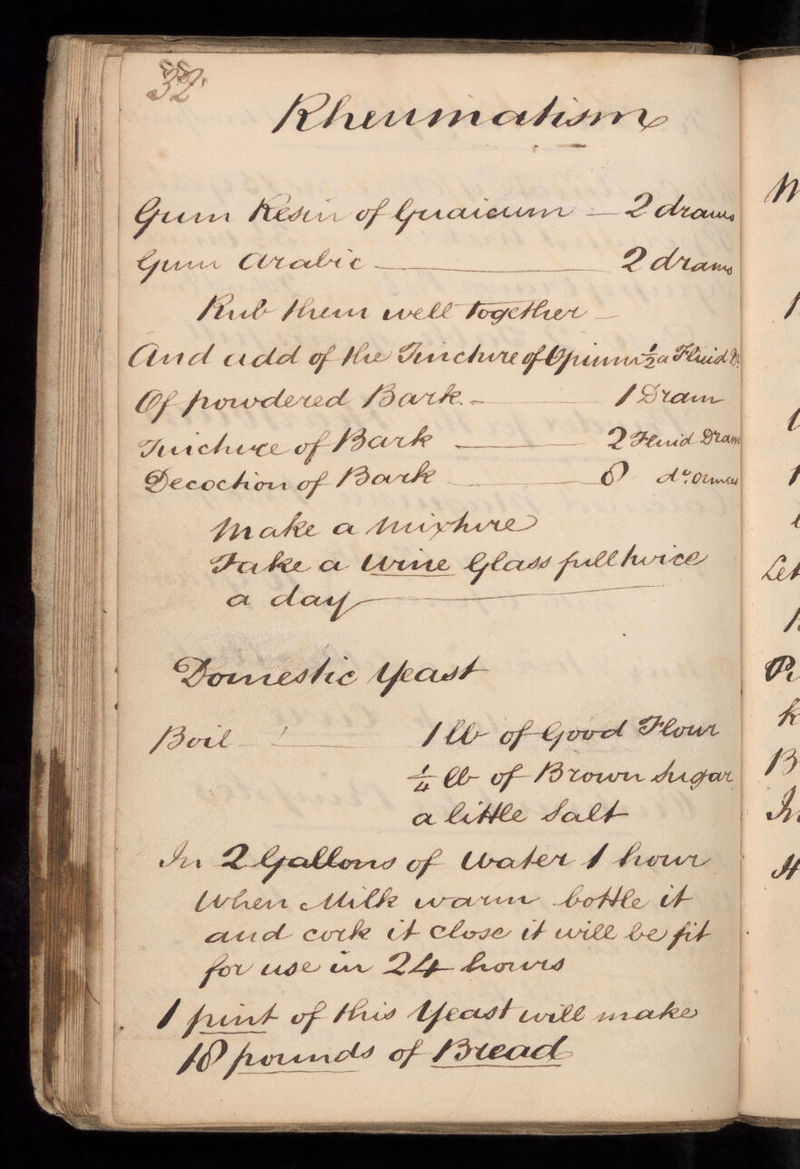 32
Rheumatism
Gum Resin of Guaicum — 2 drams
Gum Arabic — 2 drams
Rub them well together —
And add of the Tincture of Opium ½ a Fluid D.
Of powdered Bark. — 1 Dram
Tincture of Bark — 2 Fluid Dram
Decoction of Bark — 8 do. ounces
Make a Mixture
Take a Wine Glass full twice
a day —
Domestic Yeast
Boil — 1 lb of Good Flour
¼ lb of Brown Sugar
a little Salt
In 2 Gallons of Water 1 hour
When Milk warm bottle it
and cork it close it will be fit
for use in 24 hours
1 pint of this Yeast will make
18 pounds of Bread
Let